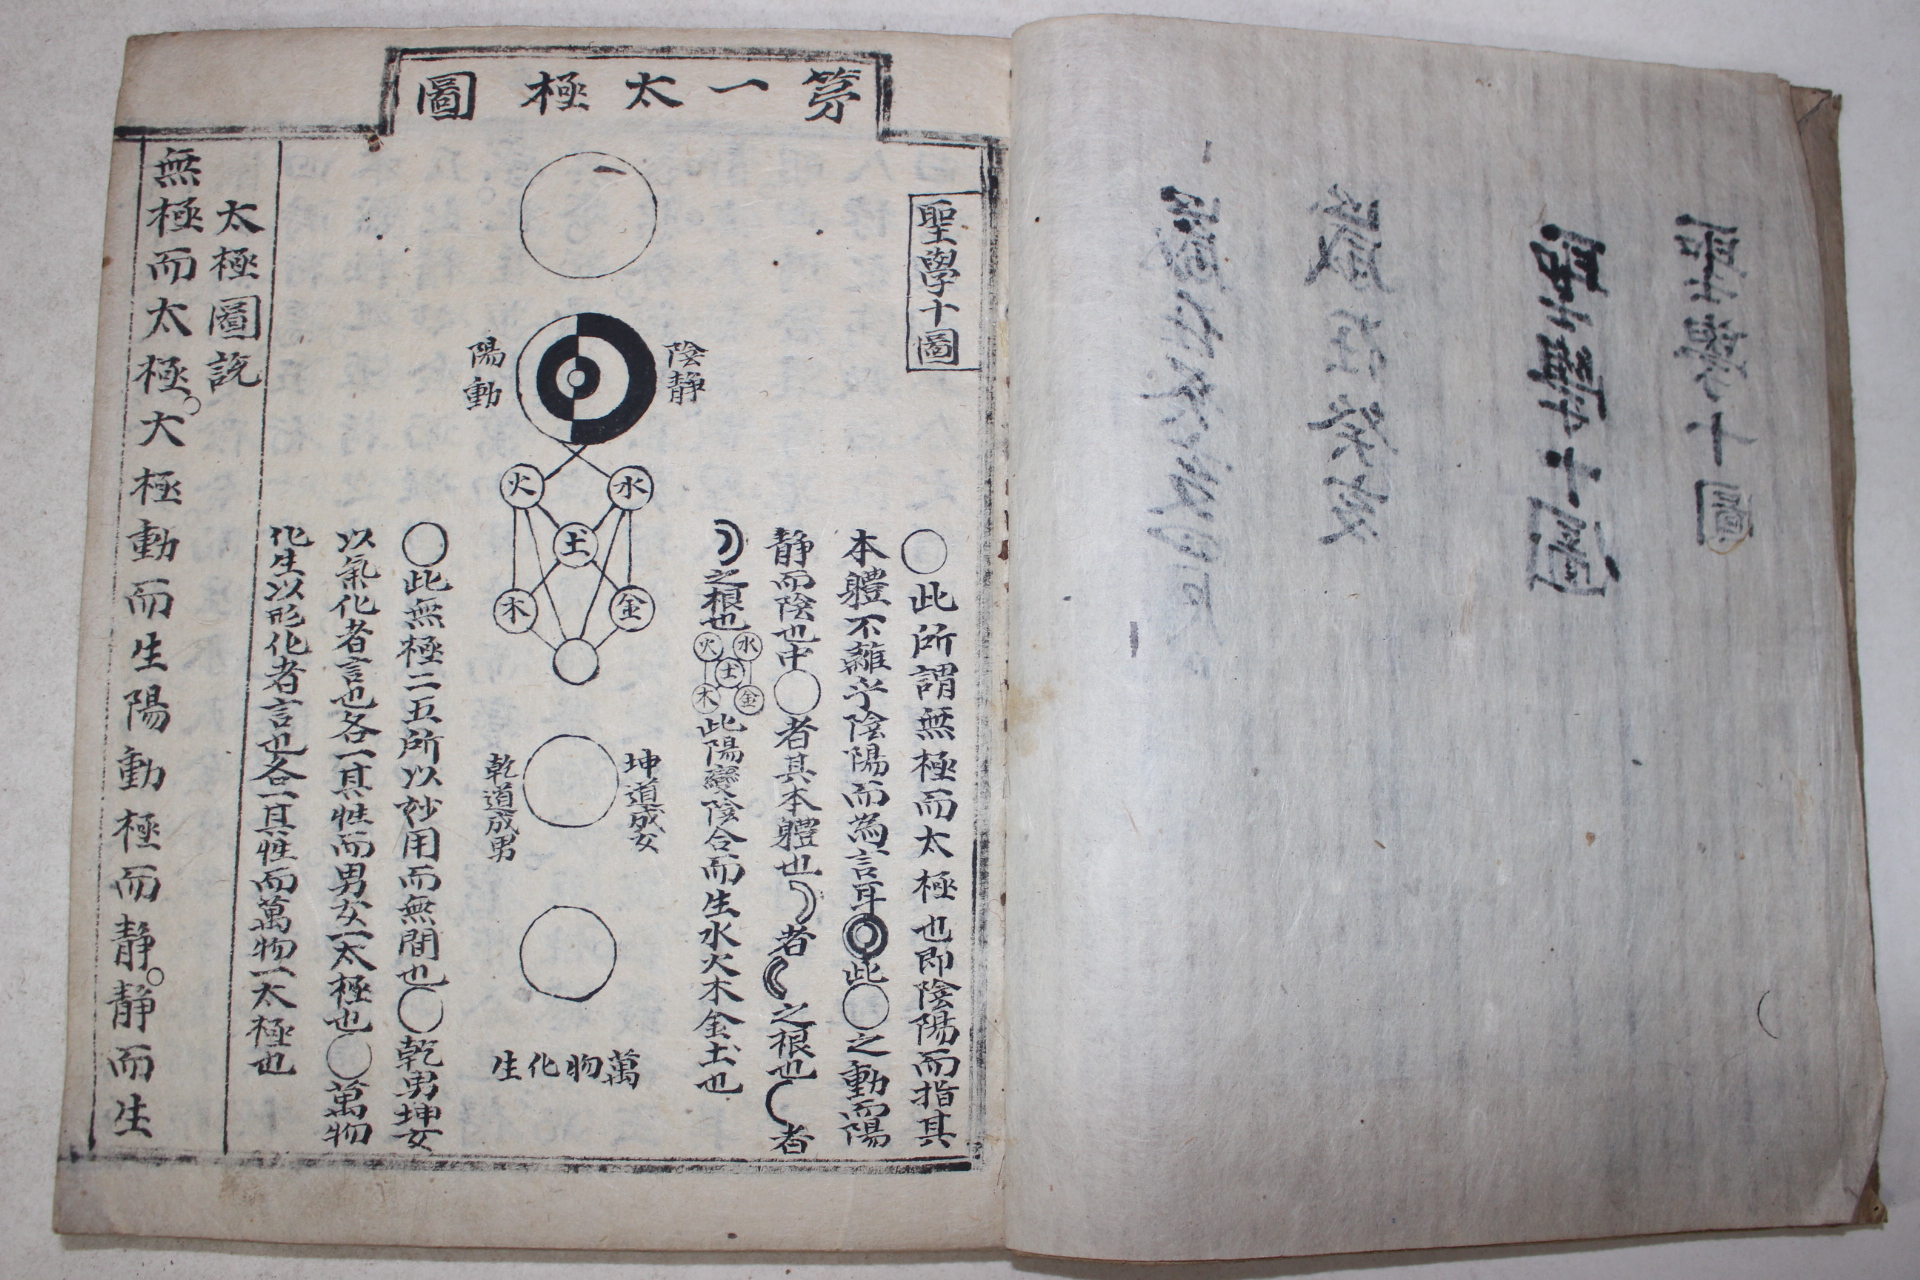 聖學十圖
聖學十圖
歲在癸亥
苐一太極圖
聖學十圖
○此所謂無極而太極也即陰陽而指其
本體不雜乎陰陽而為言耳◎此○之動而陽
静而陰也中○者其本體也☽者☾之根也☾者
☽之根也水火土金木此陽變陰合而生水火木金土也
陰静
陽動
水
火
土
金
木
坤道成女
乾道成男
萬物化生
○此無極二五所以妙用而無間也○乾男坤女
以氣化者言也各一其性而男女一太極也○萬物
化生以形化者言也各一其性而萬物一太極也
太極圖說
無極而太極。太極動而生陽動極而静。静而生